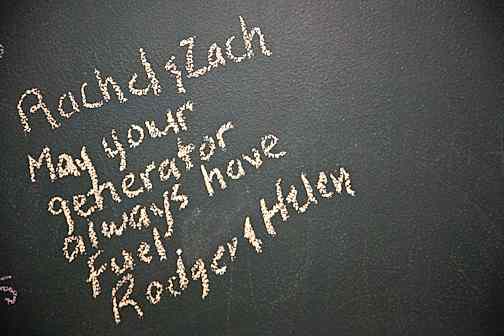 Rachel & Zach
May your
generator
always have
fuel
Rodger & Helen